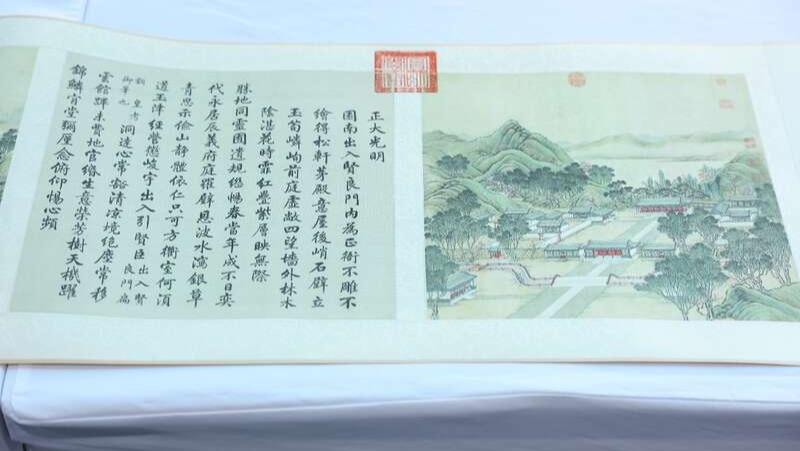 正大光明
園南出入賢良門內為正衙不雕不
繪得松軒茅殿意屋後峭石壁立
玉筍嶙峋前庭虛敞四望墻外林木
陰湛花時霏紅疊紫層映無際
勝地同靈囿遺規繼暢春當年成不日奕
代永居辰義府庭羅壁恩波水瀉銀草
青思示儉山靜體依仁只可方衢室何須
道玉津經營懲峻宇出入引賢臣出入賢良門為
皇考御筆也洞達心常豁清凉境絕塵常移
雲館蹕未費地官緡生意榮芳樹天機躍
錦鱗肯堂彌厪念俯仰惕心頻